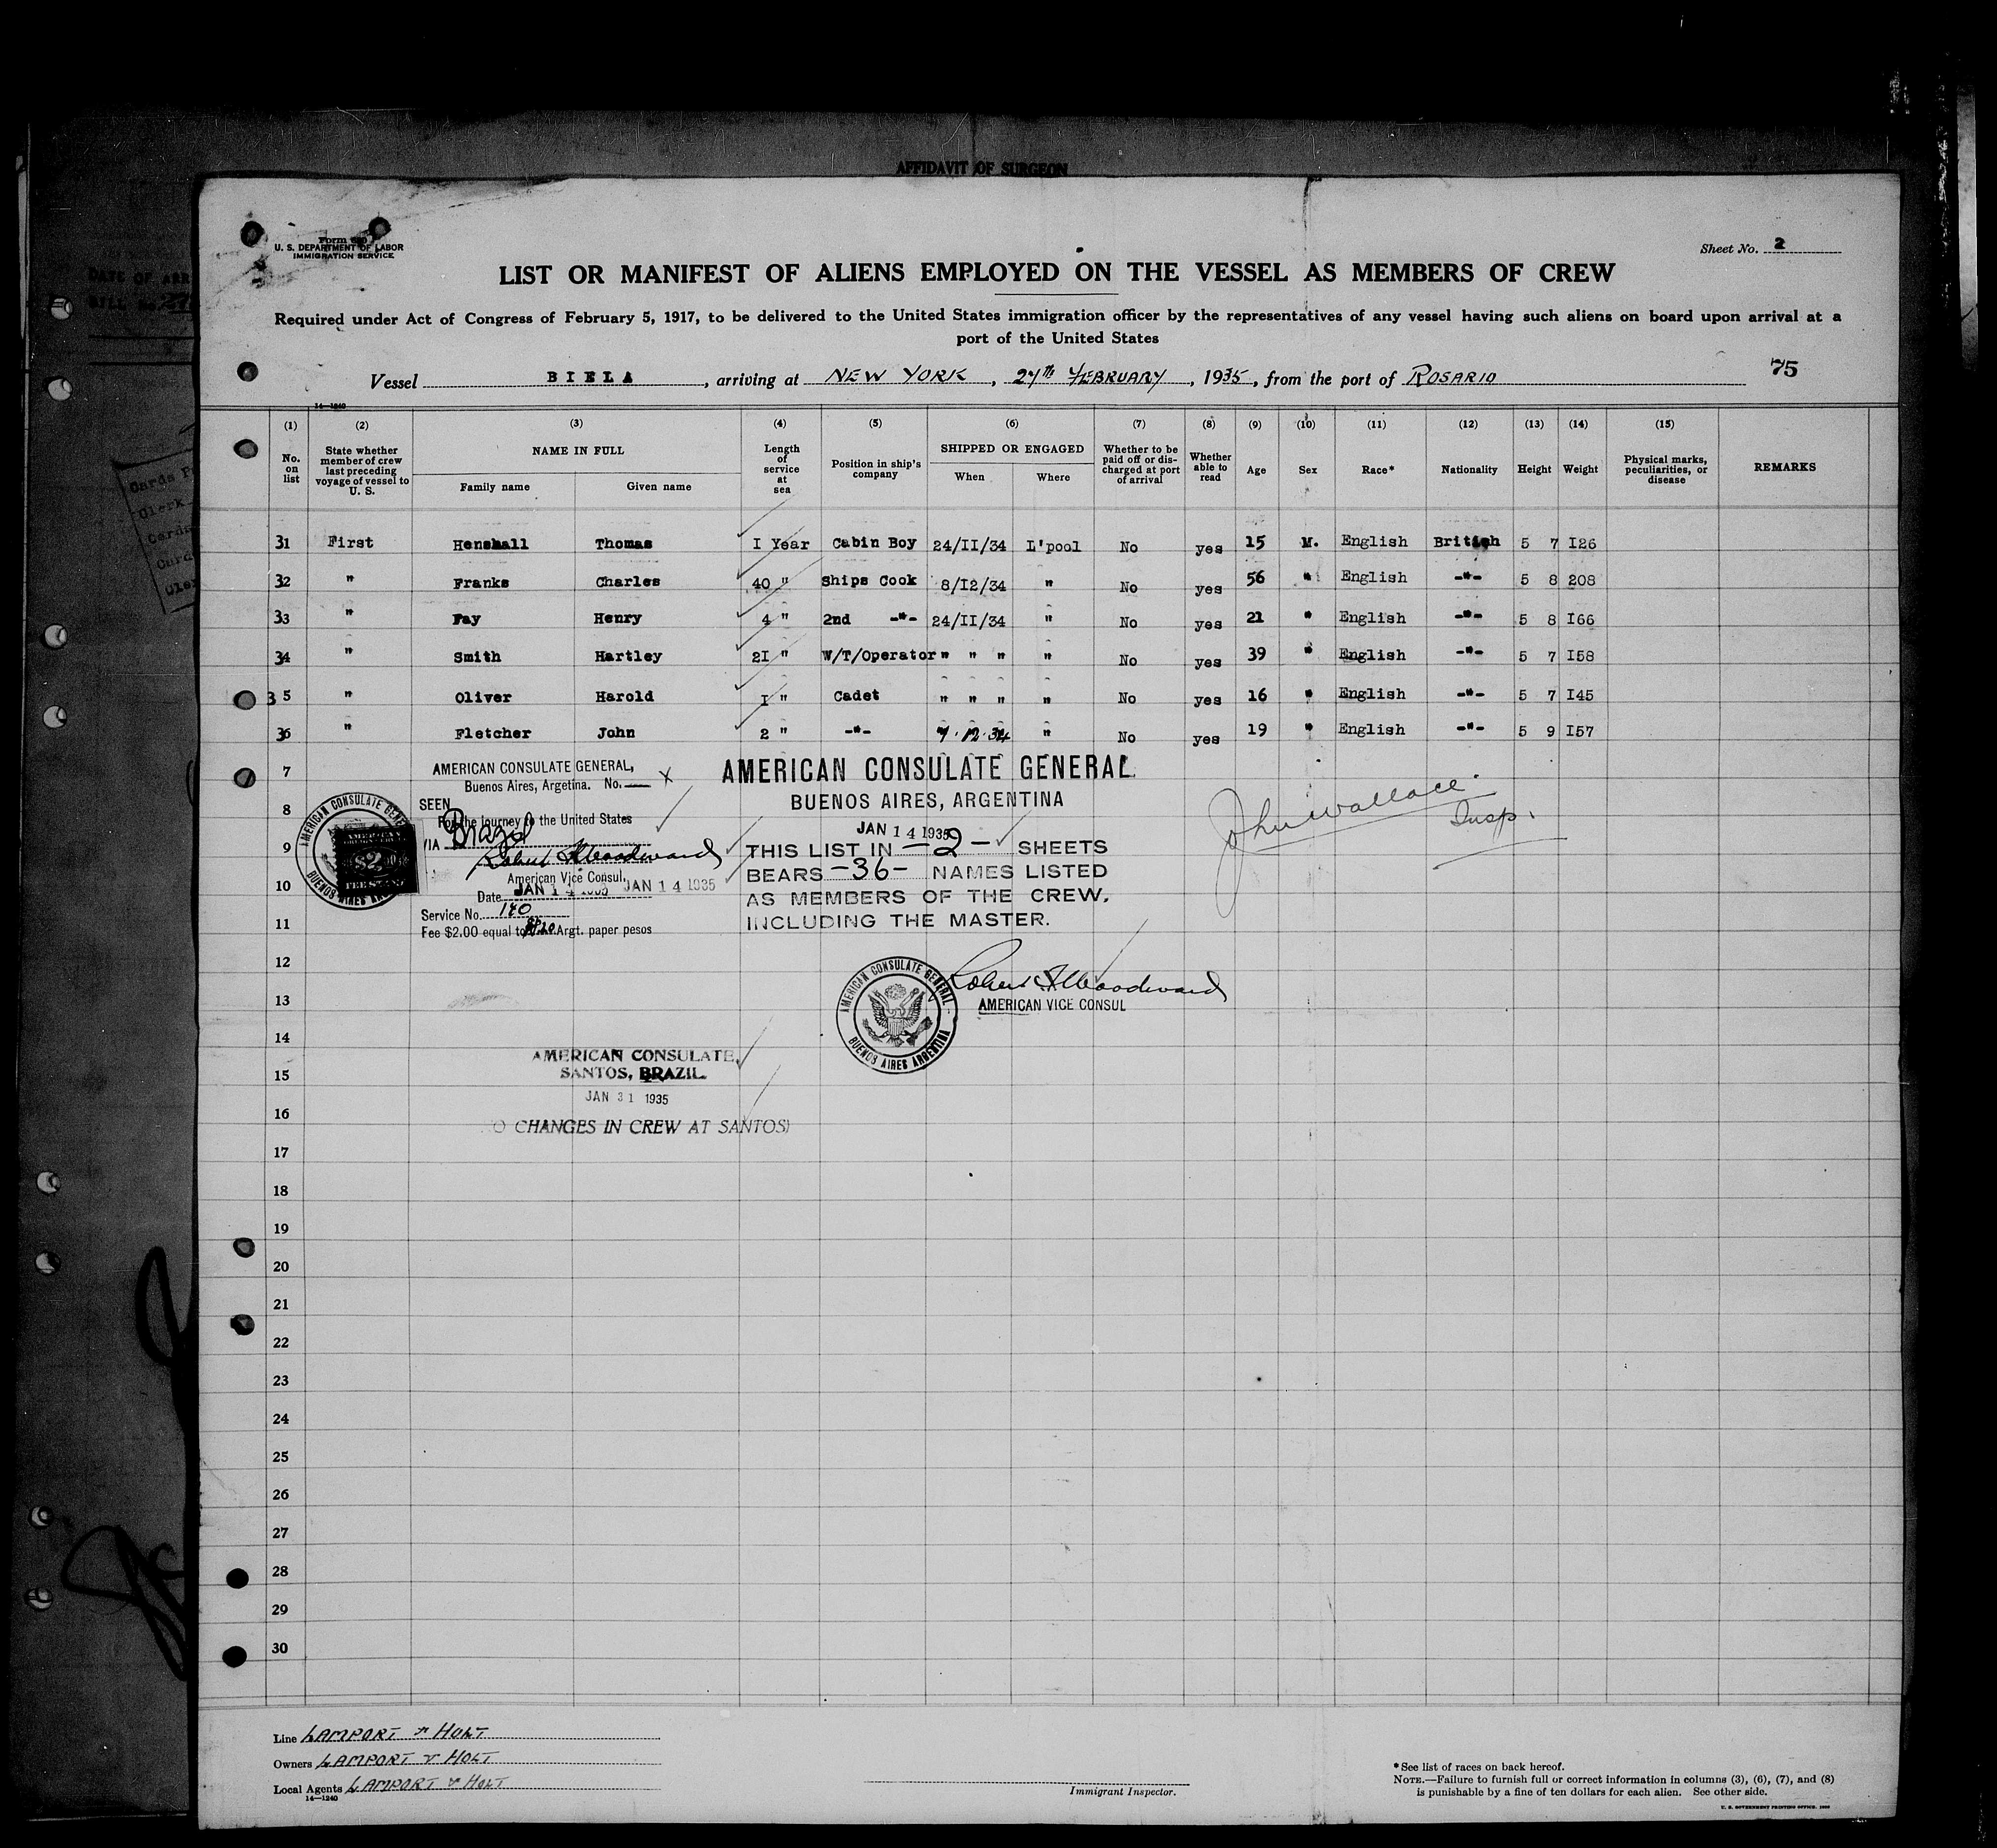 AFFIDAVIT OF SURGEON
Form
U. S. DEPARTMENT OF LABOR
IMMIGRATION SERVICE
Sheet No. 2
LIST OR MANIFEST OF ALIENS EMPLOYED ON THE VESSEL AS MEMBERS OF CREW
Required under Act of Congress of February 5, 1917, to be delivered to the United States immigration officer by the representatives of any vessel having such aliens on board upon arrival at a
port of the United States
Vessel BIELA, arriving at NEW YORK, 27th FEBRUARY, 1935, from the port of ROSARIO 75
14—1240
(1) (2) (3) (4) (5) (6) (7) (8) (9) (10) (11) (12) (13) (14) (15)
No. on list State whether member of crew last preceding voyage of vessel to U. S. NAME IN FULL Family name Given name Length of service at sea Position in ship's company SHIPPED OR ENGAGED When Where Whether to be paid off or discharged at port of arrival Whether able to read Age Sex Race* Nationality Height Weight Physical marks, peculiarities, or disease REMARKS
31 First Henshall Thomas I Year Cabin Boy 24/II/34 L'pool No yes 15 M. English British 5 7 I26
32 " Franks Charles 40 " Ships Cook 8/I2/34 " No yes 56 " English -"- 5 8 208
33 " Fay Henry 4 " 2nd -"- 24/II/34 " No yes 21 " English -"- 5 8 I66
34 " Smith Hartley 2I " W/T/Operator " " " " No yes 39 " English -"- 5 7 I58
35 " Oliver Harold I " Cadet " " " " No yes 16 " English -"- 5 7 I45
36 " Fletcher John 2 " -"- 7.12.34 " No yes 19 " English -"- 5 9 I57
7
8
9
10
11
12
13
14
15
16
17
18
19
20
21
22
23
24
25
26
27
28
29
30
AMERICAN CONSULATE GENERAL,
Buenos Aires, Argetina. No. — X
SEEN
For the journey to the United States
VIA Brazil
Robert F Woodward
American Vice Consul.
Date JAN 14 1935 JAN 14 1935
Service No. 140
Fee $2.00 equal to Argt. paper pesos
AMERICAN CONSULATE GENERAL
BUENOS AIRES ARGENTINA
$2
FEE STAMP
AMERICAN CONSULATE GENERAL
BUENOS AIRES, ARGENTINA
JAN 14 1935
THIS LIST IN —2— SHEETS
BEARS —36— NAMES LISTED
AS MEMBERS OF THE CREW,
INCLUDING THE MASTER.
Robert F Woodward
AMERICAN VICE CONSUL
AMERICAN CONSULATE GENERAL
BUENOS AIRES ARGENTINA
John Wallace
Insp.
AMERICAN CONSULATE,
SANTOS, BRAZIL.
JAN 31 1935
O CHANGES IN CREW AT SANTOS)
Line LAMPORT & HOLT
Owners LAMPORT & HOLT
Local Agents LAMPORT & HOLT
14—1240
Immigrant Inspector.
* See list of races on back hereof.
NOTE.—Failure to furnish full or correct information in columns (3), (6), (7), and (8)
is punishable by a fine of ten dollars for each alien. See other side.
U. S. GOVERNMENT PRINTING OFFICE.